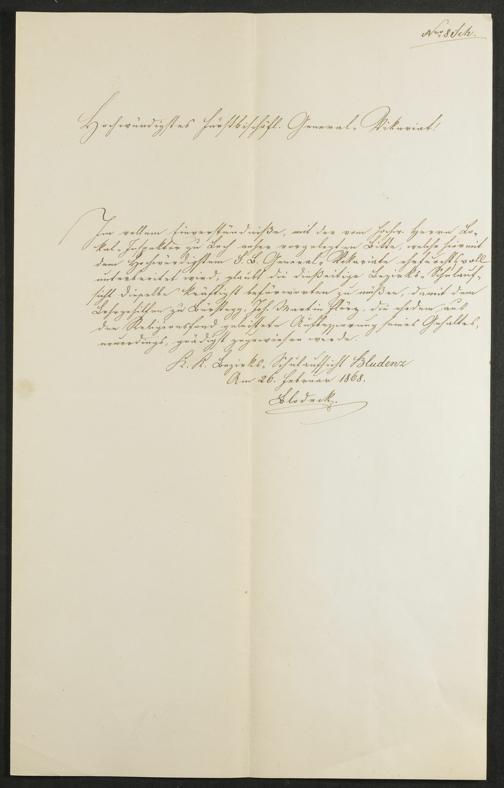 Nro 8 Sch.
Hochwürdigstes Fürstbischöfl. General-Vikariat!
Im vollem Einverständniße, mit der vom hochw. Herrn Lo-
kal-Inspektor zu Lech anher vorgelegten Bitte, welche hiemit
dem Hochwürdigsten F. B. General-Vikariate ehrfurchtsvoll
unterbreitet wird, glaubt die dießseitige Bezirks-Schulauf-
sicht dieselbe kräftigst befürworten zu müßen, damit dem
Lehrgehilfen zu Bürstegg, Joh. Martin die ehedem aus
dem Religionsfond geleistete Aufbesserung seines Gehaltes,
neuerdings gnädigst zugewiesen werde.
K. K. Bezirks-Schulaufsicht Bludenz
Am 26. Februar 1868.